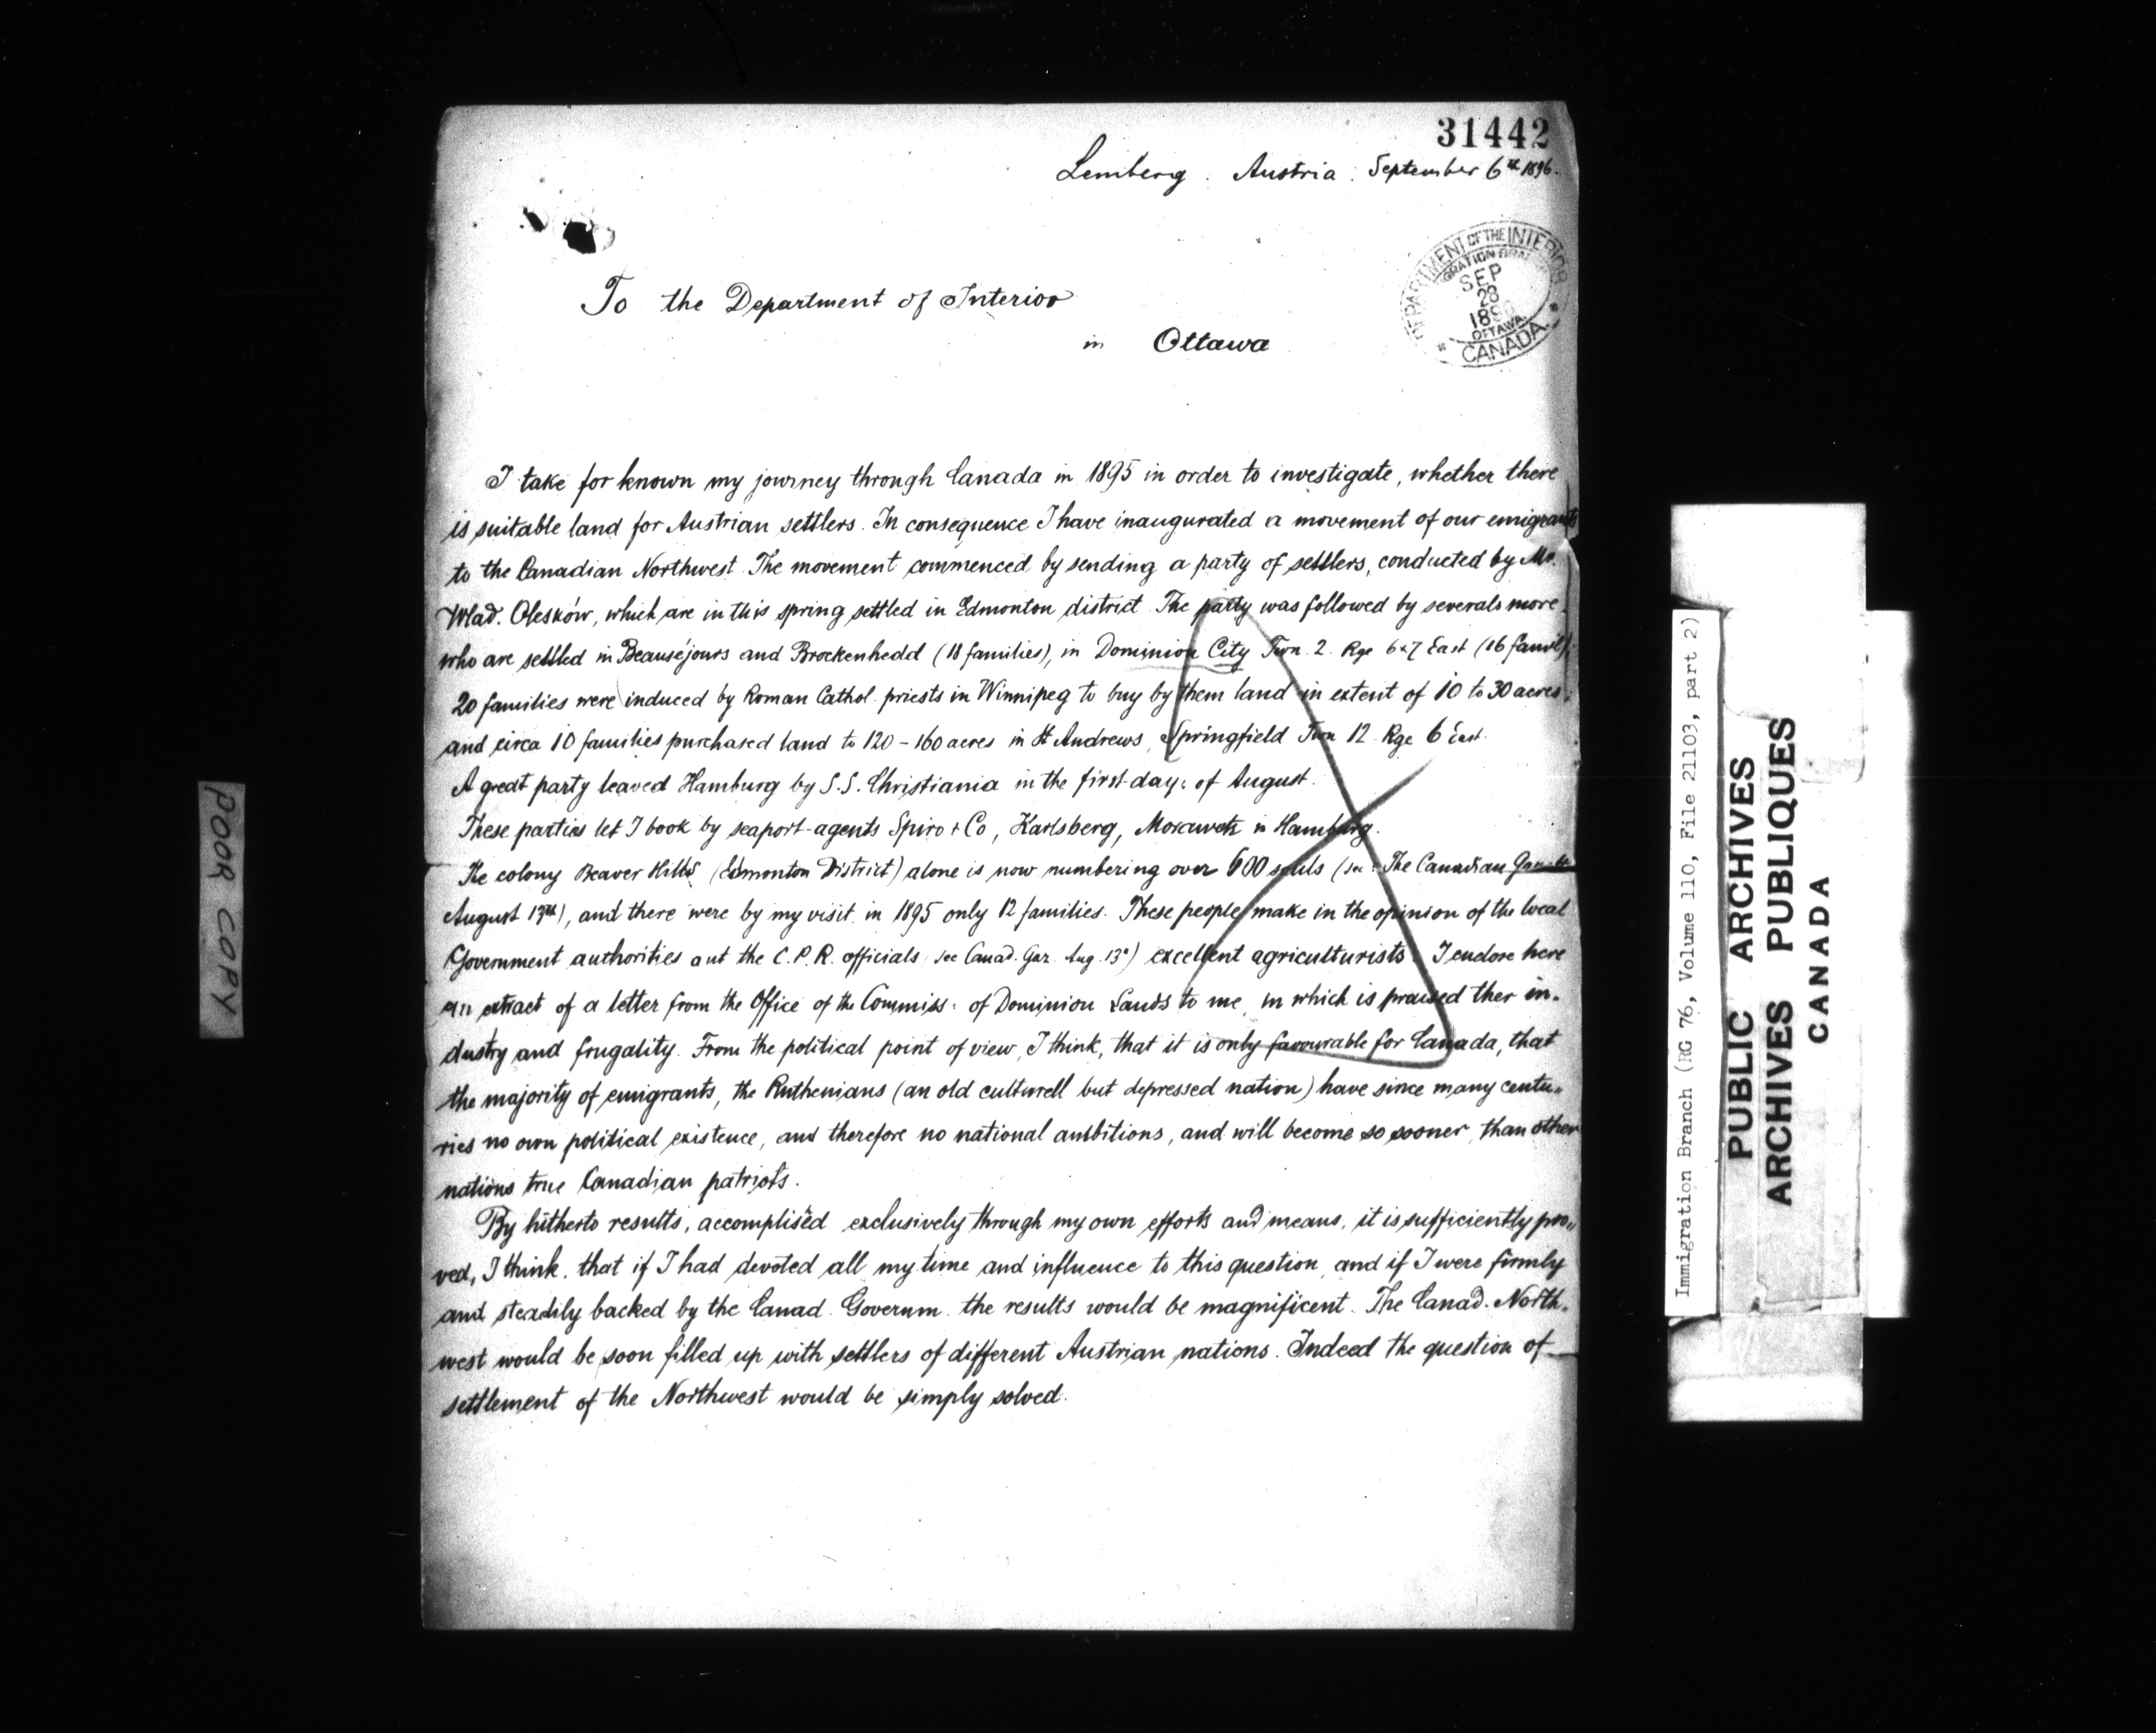 31442
Lemberg. Austria. September 6th 1896.
DEPARTMENT OF THE INTERIOR
SEP
28
189
OTTAWA.
* CANADA. *
To the Department of Interior
in Ottawa
I take for known my journey through Canada in 1895 in order to investigate, whether there
is suitable land for Austrian settlers. In consequence I have inaugurated a movement of our emigrants
to the Canadian Northwest. The movement commenced by sending a party of settlers, conducted by Mr.
Wlad. Olesków, which are in this spring settled in Edmonton district. The party was followed by severals more
who are settled in Beauséjours and Brockenhedd (18 families), in Dominion City Twn. 2. Rge 6 & 7 East (16 famil);
20 families were induced by Roman Cathol. priests in Winnipeg to buy by them land in extent of 10 to 30 acres;
and circa 10 families purchased land to 120 – 160 acres in St Andrews, Springfield Twn 12 Rge 6 East.
A great party leaved Hamburg by S.S. Christiania in the first days of August.
These parties let I book by seaport-agents Spiro & Co, Karlsberg, Morawetz in Hamburg.
The colony Beaver Hills (Edmonton District) alone is now numbering over 600 souls (see: The Canadian Gazette
August 13th), and there were by my visit in 1895 only 12 families. These people make in the opinion of the local
Government authorities aut the C.P.R. officials see Canad. Gaz. Aug. 13th) excellent agriculturists. I endore here
an extract of a letter from the Office of the Commiss: of Dominion Lands to me, in which is praised ther in-
dustry and frugality. From the political point of view, I think, that it is only favourable for Canada, that
the majority of emigrants, the Ruthenians (an old culturell but depressed nation) have since many centu-
ries no own political existence, and therefore no national ambitions, and will become so sooner, than other
nations true Canadian patriots.
By hitherto results, accomplisëd exclusively through my own efforts and means, it is sufficiently pro„
ved, I think, that if I had devoted all my time and influence to this question, and if I were firmly
and steadily backed by the Canad. Governm. the results would be magnificent. The Canad. North-
west would be soon filled up with settlers of different Austrian nations. Indeed the question of
settlement of the Northwest would be simply solved.
POOR COPY
Immigration Branch (RG 76, Volume 110, File 21103, part 2)
PUBLIC ARCHIVES
ARCHIVES PUBLIQUES
CANADA